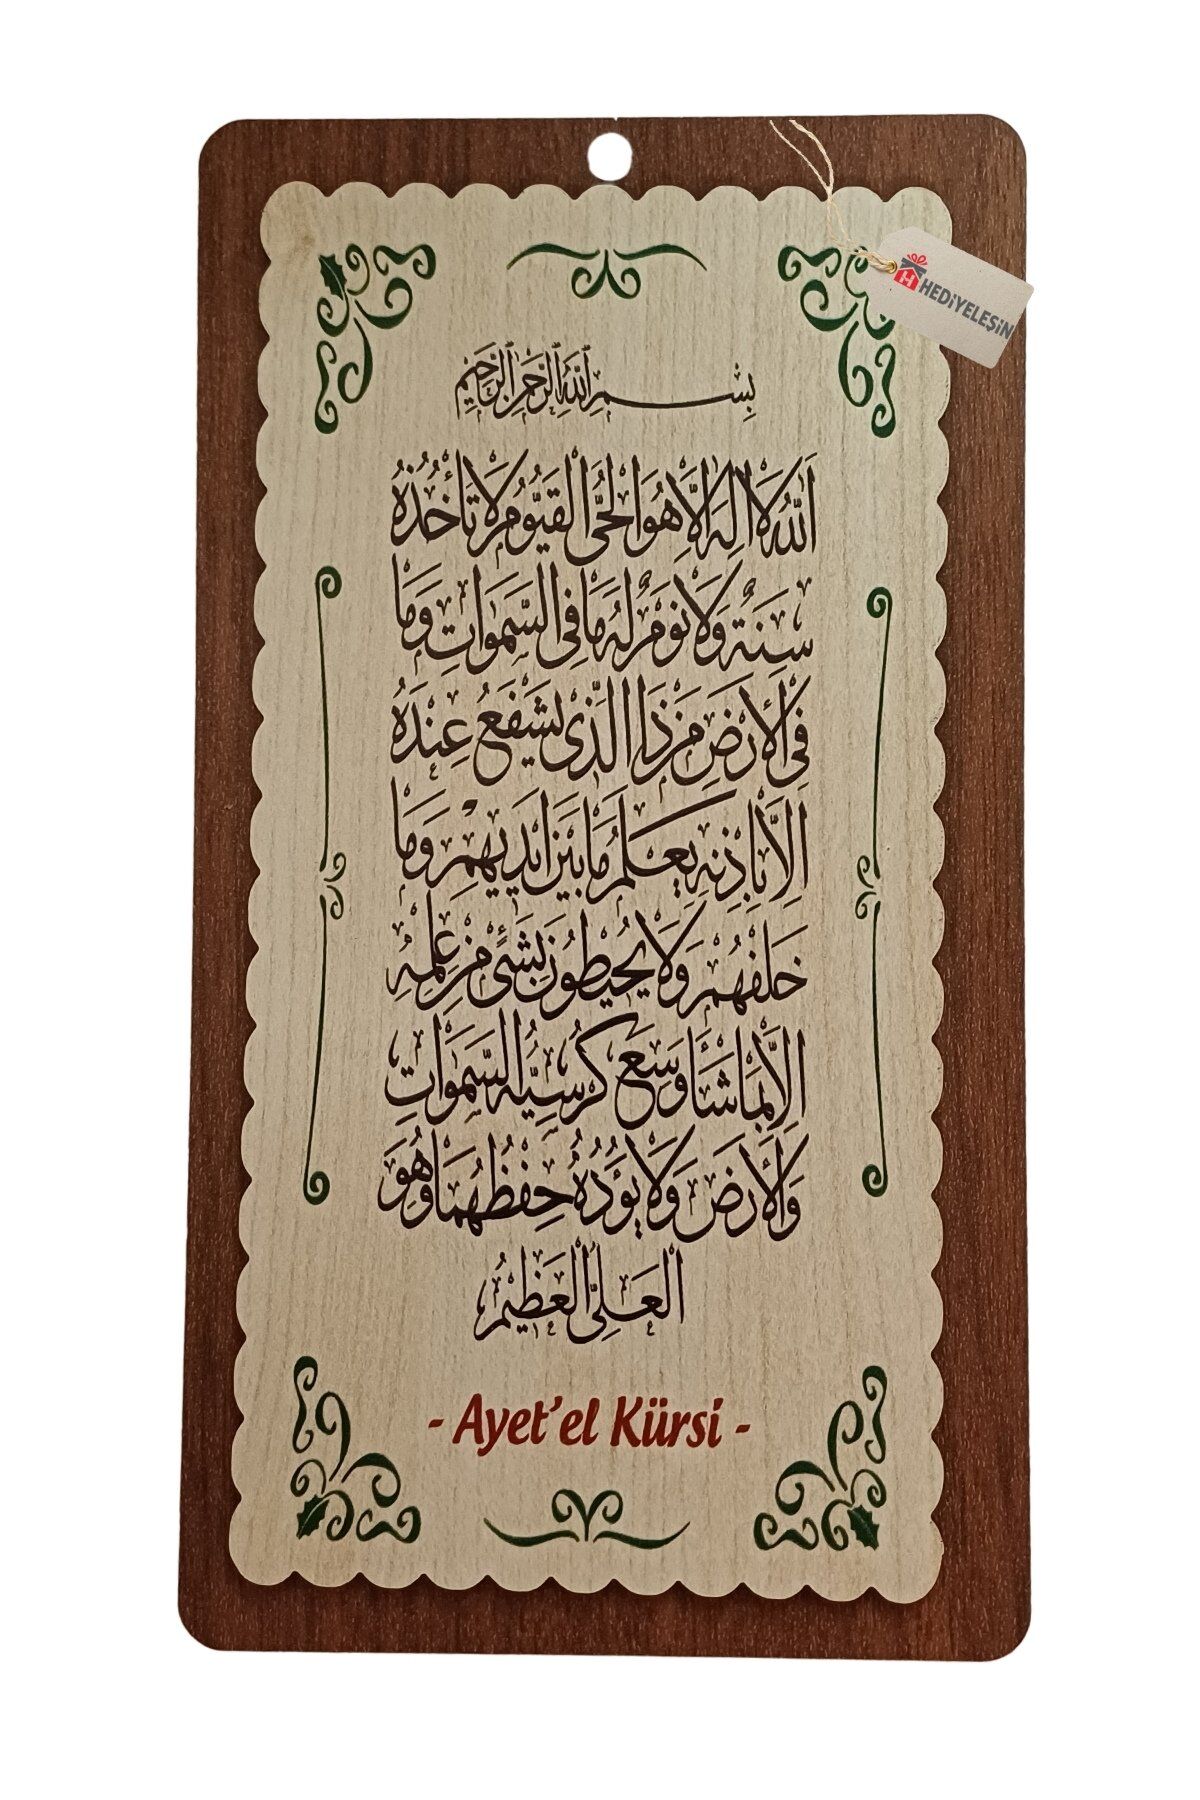 HEDİYELEŞİN
بِسْمِ ٱللَّهِ ٱلرَّحْمَنِ ٱلرَّحِيمِ
اَللّٰهُ لَا اِلٰهَ اِلَّا هُوَ الْحَىُّ الْقَيُّومُ لَا تَأْخُذُهُ
سِنَةٌ وَلَا نَوْمٌ لَهُ مَا فِى السَّمٰوَاتِ وَمَا
فِى الْاَرْضِ مَنْ ذَا الَّذِى يَشْفَعُ عِنْدَهُ
اِلَّا بِاِذْنِهِ يَعْلَمُ مَا بَيْنَ اَيْدِيهِمْ وَمَا
خَلْفَهُمْ وَلَا يُحِيطُونَ بِشَىْءٍ مِنْ عِلْمِهِ
اِلَّا بِمَا شَآءَ وَسِعَ كُرْسِيُّهُ السَّمٰوَاتِ
وَالْاَرْضَ وَلَا يَؤُدُهُ حِفْظُهُمَا وَهُوَ
الْعَلِىُّ الْعَظِيمُ
- Ayet'el Kürsi -